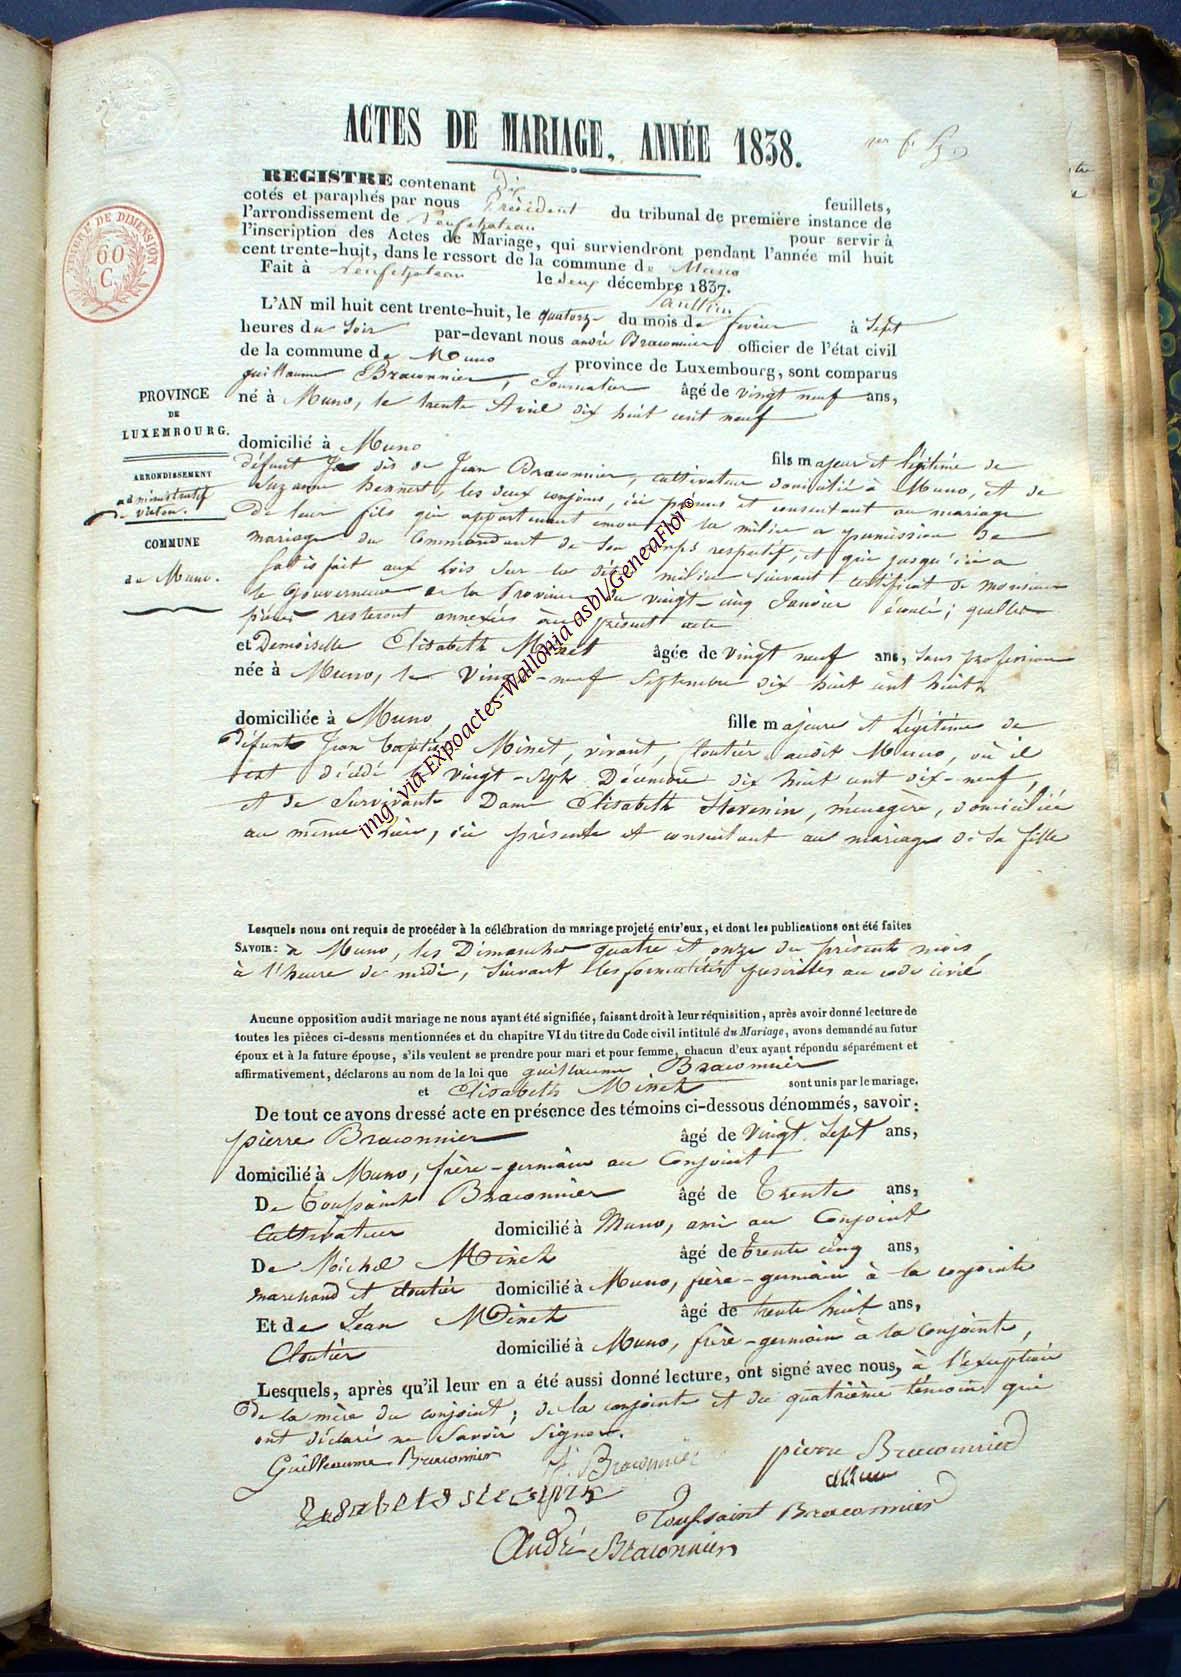 ACTES DE MARIAGE, ANNÉE 1838.
REGISTRE contenant dix feuillets,
cotés et paraphés par nous Président du tribunal de première instance de
l'arrondissement de Neufchateau pour servir à
l'inscription des Actes de Mariage, qui surviendront pendant l'année mil huit
cent trente-huit, dans le ressort de la commune de Muno
Fait à Neufchateau le deux décembre 1837.
TIMBRE DE DIMENSION
60
C.
L'AN mil huit cent trente-huit, le quatorze du mois de fevrier à Sept
heures du Soir par-devant nous andré Braconnier officier de l'état civil
de la commune de Muno province de Luxembourg, sont comparus
guillaume Braconnier, Journalier âgé de vingt neuf ans,
né à Muno, le trente Avril dix huit cent neuf
PROVINCE
DE
LUXEMBOURG.
ARRONDISSEMENT
administratif
de virton.
COMMUNE
de Muno.
domicilié à Muno fils majeur et légitime de
défunt de Jean Braconnier, cultivateur domicilié à Muno, et de
Suzanne hennert, les deux conjoins, ici présens et consentant au mariage
de leur fils qui appartenant à la milice a permission de
mariage du Commandant de Son respectif, et qui jusqu'ici a
Satisfait aux Lois sur la milice suivant certificat de monsieur
le Gouverneur de la Province du vingt-cinq Janvier écoulé; quelles
pièces resteront annexées au présent acte
et Demoiselle Elisabeth Minet âgée de Vingt neuf ans, Sans profession
née à Muno, le Vingt-neuf Septembre dix huit cent huit
domiciliée à Muno fille majeure et Légitime de
défunt Jean baptiste Minet, vivant, Cloutier audit Muno, où il
est décédé le vingt-sept Décembre dix huit cent dix-neuf,
et de Survivante Dame Elisabeth Stevenin, ménagère, domiciliée
au même Lieu, ici présente et consentant au mariage de Sa fille
Lesquels nous ont requis de procéder à la célébration du mariage projeté entr'eux, et dont les publications ont été faites
SAVOIR: a Muno, les Dimanches quatre et onze du présent mois,
à l'heure de midi, Suivant les formalités prescrites au code civil
Aucune opposition audit mariage ne nous ayant été signifiée, faisant droit à leur réquisition, après avoir donné lecture de
toutes les pièces ci-dessus mentionnées et du chapitre VI du titre du Code civil intitulé du Mariage, avons demandé au futur
époux et à la future épouse, s'ils veulent se prendre pour mari et pour femme, chacun d'eux ayant répondu séparément et
affirmativement, déclarons au nom de la loi que guillaume Braconnier
et Elisabeth Minet sont unis par le mariage.
De tout ce avons dressé acte en présence des témoins ci-dessous dénommés, savoir:
pierre Braconnier âgé de Vingt Sept ans,
domicilié à Muno, frère-germain au Conjoint
De Toussaint Braconnier âgé de Trente ans,
Cultivateur domicilié à Muno, ami au Conjoint
De Michel Minet âgé de trente cinq ans,
marchand et cloutier domicilié à Muno, frère-germain à la conjointe
Et de Jean Minet âgé de trente huit ans,
Cloutier domicilié à Muno, frère-germain à la Conjointe,
Lesquels, après qu'il leur en a été aussi donné lecture, ont signé avec nous, à l'exception
De la mère du conjoint; de la conjointe et du quatrième témoin qui
ont déclaré ne Savoir Signer.
Guilleaume Braconnier J. Braconnier pierre Braconnier
Toussaint Braconnier
André Braconnier
img. via Expoactes-Wallonia asbl/GeneaFlor ©